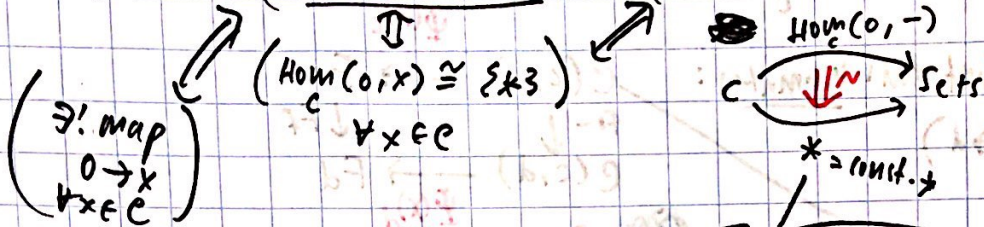 ∃! map
0 → x
∀x∈C
Hom_C(0,x) ≅ {*}
∀x∈C
Hom_C(0,-)
C ⇓~ Sets
* = const.*